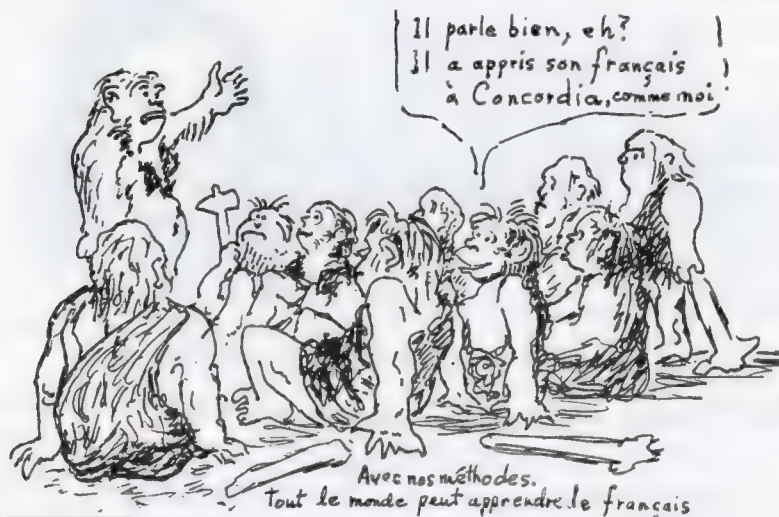 Il parle bien, eh?
Il a appris son français
à Concordia, comme moi
Avec nos méthodes.
Tout le monde peut apprendre le français